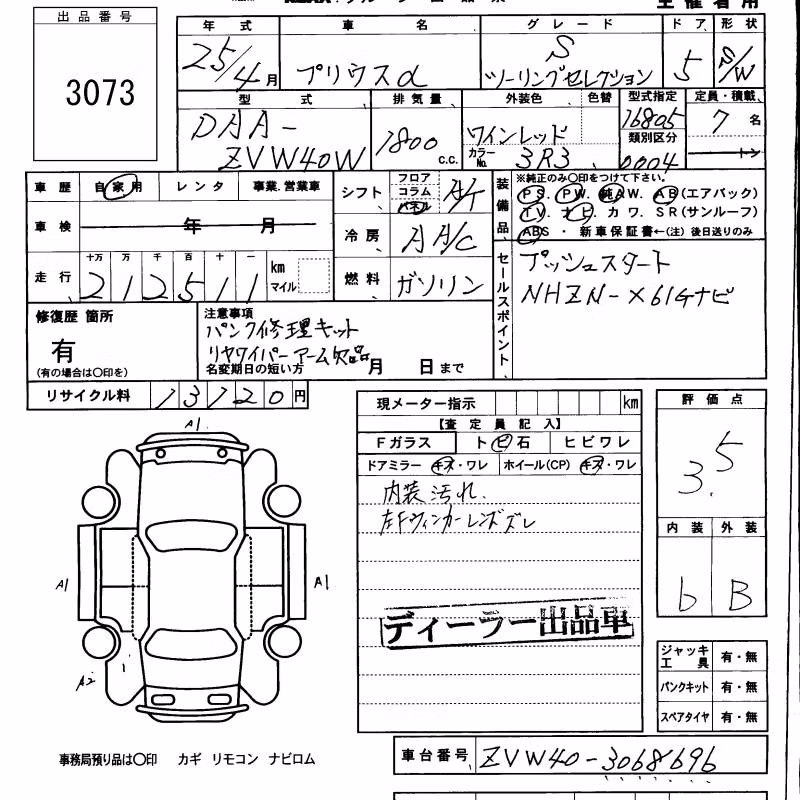 主催者用
出品番号
3073
年式 車名 グレード ドア 形状
25/4月 プリウスα S ツーリングセレクション 5 S/W
型式 排気量 外装色 色替 型式指定 定員・積載
DAA-ZVW40W 1800 c.c. ワインレッド 16805 7名
カラーNo. 3R3 類別区分 0004 トン
車歴 自家用 レンタ 事業.営業車
シフト フロア コラム パネル A/T
装備品 ※純正のみ○印をつけて下さい。
PS. PW. 純AW. AB(エアバック)
TV. ナビ. カワ. SR(サンルーフ)
ABS ・ 新車保証書←(注) 後日送りのみ
車検 年 月
冷房 AA/C
走行 十万 万 千 百 十 一
212511 km マイル
燃料 ガソリン
セールスポイント
プッシュスタート
NHZN-X61Gナビ
修復歴 箇所
有
(有の場合は○印を)
注意事項
パンク修理キット
リヤワイパーアーム欠品
名変期日の短い方 月 日まで
リサイクル料 13120円
現メーター指示 km
【査定員記入】
Fガラス トビ石 ヒビワレ
ドアミラー キズ・ワレ ホイール(CP) キズ・ワレ
内装汚れ.
左Fウィンカーレンズズレ
ディーラー出品車
評価点
3.5
内装 外装
b B
A1
A1
A1
A2
1
ジャッキ工具 有・無
パンクキット 有・無
スペアタイヤ 有・無
事務局預り品は○印 カギ リモコン ナビロム
車台番号 ZVW40-3068696